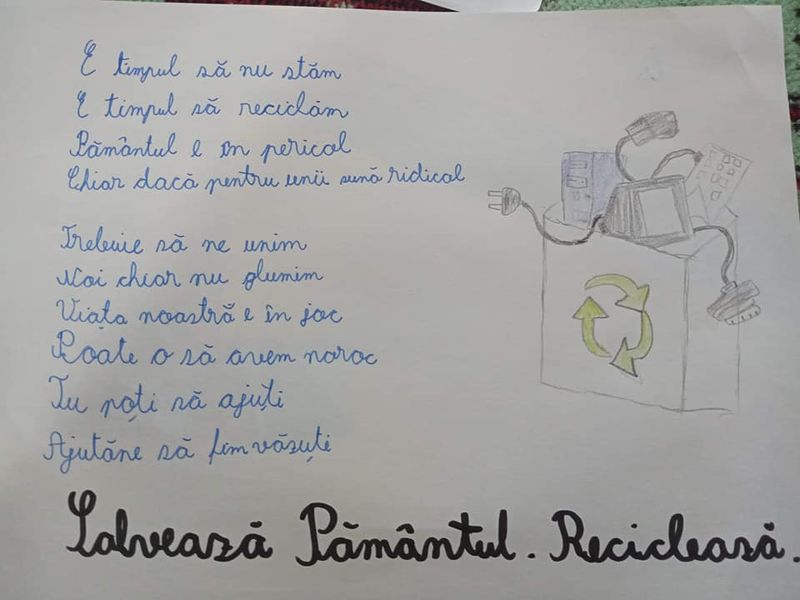 E timpul să nu stăm
E timpul să reciclăm
Pământul e în pericol
Chiar dacă pentru unii sună ridicol
Trebuie să ne unim
Noi chiar nu glumim
Viața noastră e în joc
Poate o să avem noroc
Tu poți să ajuți
Ajutăne să fim văsuți
Salvează Pământul. Reciclează.